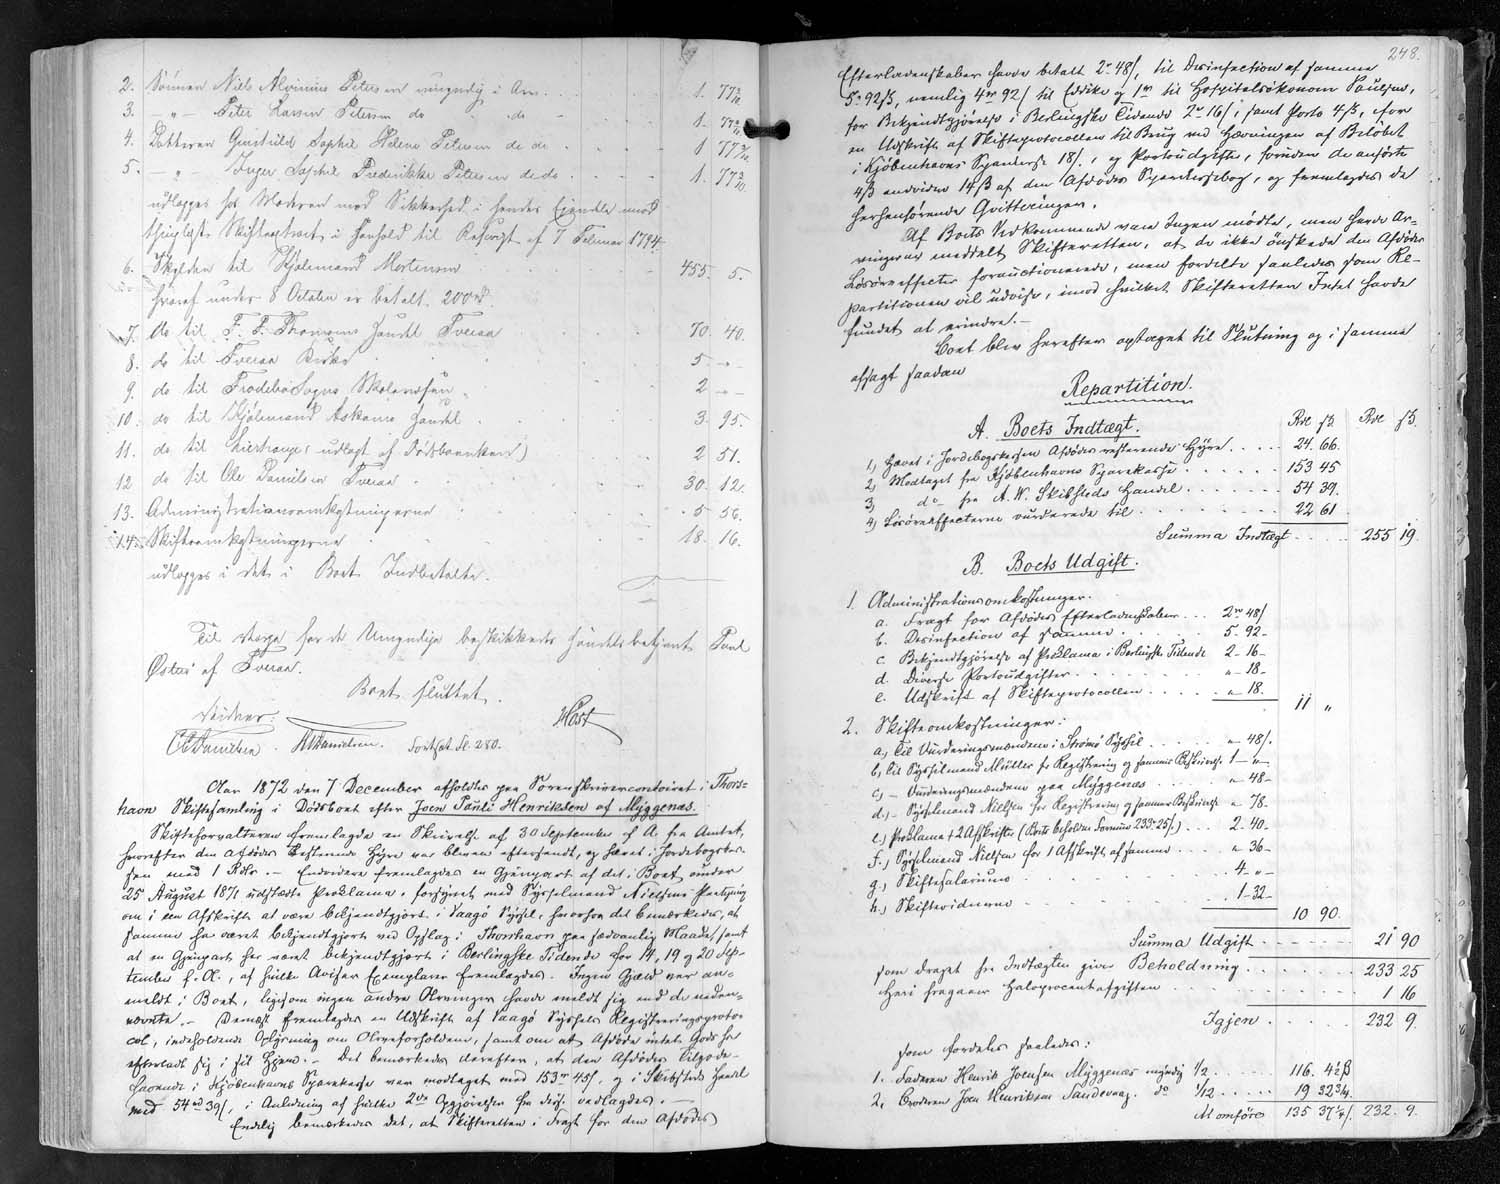 2. Sønnen Niels Petersen umyndig i Arv . . . 1. 77
3. — " — Peter Larsen Petersen do do . . 1. 77
4. Datteren Sophie Helene Petersen do do . . . 1 77
5. — " Inger Sophie Frederikke Petersen do do . . . 1. 77
udlægges hos Moderen mod Sikkerhed i hendes Eiendele mod
Skifteextract i Henhold til Rescript af 7 Februar 1794.
6. Skylden til Kjøbmand Mortensen . . . 455. 5.
hvoraf under 8 October er betalt 200 rd.
7. do til Handel Tveraa . . 70. 40.
8. do til Tveraa . . . 5 — " —
9. do til Frodebø Sogns . . 2 — " —
10. do til Kjøbmand Handel . . . 3. 95.
11. do til 2 51.
12 do til Ole Danielsen Tveraa . . . 30. 12.
13. Administrationsomkostningerne . . 5 56.
14. Skifteomkostningerne . . . 18. 16.
udlægges i det i Boet Indbetalte.
Til Værge for de Umyndige beskikkedes Handelsbetjent Poul
af Tveraa.
Boet sluttet.
Vidner: Høst
Danielsen. Danielsen. Fortsat fol. 280.
Aar 1872 den 7 December afholdtes paa Sorenskrivercontoiret i Thors-
havn Skiftesamling i Dødsboet efter Joen Pauli Henriksen af Myggenæs.
Skifteforvalteren fremlagde en Skrivelse af 30 September f. A. fra Amtet,
hvorefter den Afdødes resterende Hyre var bleven eftersendt, og hævet i Jordebogskas-
sen med 1 Rdlr. — Endvidere fremlagdes en Gjenpart af det i Boet under
25 August 1871 udstædte Proklama, forsynet med Sysselmand Nielsens Paategning
om i een Afskrift at være bekjendtgjort i Vaagø Syssel, hvorhos det bemærkedes, at
samme har været bekjendtgjort ved Opslag i Thorshavn paa sædvanlig Maade, samt
at en Gjenpart har været bekjendtgjort i Berlingske Tidende for 14, 19 og 20 Sep-
tember f. A., af hvilke Aviser Exemplarer fremlagdes. Ingen Gjæld var an-
meldt i Boet, ligesom ingen andre Arvinger havde meldt sig end de neden-
nævnte. — Dernæst fremlagdes en Udskrift af Vaagø Syssels Registreringsproto-
col, indeholdende Oplysning om Arveforholdene, samt om at Afdøde intet Gods har
efterladt sig i sit Hjem. — Det bemærkedes derefter, at den Afdødes Tilgode-
havende i Kjøbenhavns Sparekasse var modtaget med 153 rd 45 ß, og i Skibsteds Handel
med 54 rd 39 ß, i Anledning af hvilke 2de Opgjørelser fra vedlagdes. —
Endelig bemærkedes det, at Skifteretten i Fragt for den Afdødes
248.
Efterladenskaber havde betalt 2 rd 48 ß, til Desinfection af samme
5 rd 92 ß, nemlig 4 rd 92 ß til Eddike og 1 rd til Hospitalsøkonom Poulsen,
for Bekjendtgjørelse i Berlingske Tidende 2 rd 16 ß, samt Porto 4 ß, for
en Udskrift af Skifteprotocollen til Brug ved Hævningen af Beløbet
i Kjøbenhavns Sparekasse 18 ß, og Portoudgifter, foruden de anførte
4 ß endvidere 14 ß af den Afdødes Sparekassebog, og fremlagdes de
herhenhørende Qvitteringer.
Af Boets Vedkommende vare Ingen mødte, men havde Ar-
vingerne meddelt Skifteretten, at de ikke ønskede den Afdødes
Løsøreeffecter forauctionerede, men fordelte saaledes som Re-
partitionen vil udvise, imod hvilket Skifteretten Intet havde
fundet at erindre. —
Boet blev herefter optaget til Slutning og i samme
afsagt saadan
Repartition.
A. Boets Indtægt. Rdl ß. Rdl ß.
1, Hævet i Jordebogskassen Afdødes resterende Hyre . . . . 24. 66.
2, Modtaget fra Kjøbenhavns Sparekasse . . . . . 153 45
3, do fra A. W. Skibsteds Handel . . . . . . 54 39.
4, Løsøreeffecterne vurderede til . . . . . . 22 61
Summa Indtægt . . . . 255 19
B. Boets Udgift.
1. Administrationsomkostninger.
a. Fragt for Afdødes Efterladenskaber . . . 2 rd 48 ß
b. Desinfection af samme . . . . . . 5. 92 -
c. Bekjendtgjørelse af Proklama i Berlingske Tidende 2 - 16 -
d. Diverse Portoudgifter . . . . . . " - 18 -
e. Udskrift af Skifteprotocollen . . . . . " - 18.
11 "
2. Skifteomkostninger:
a, Til Vurderingsmændene i Strømø Syssel . . . . " - 48 ß.
b, Til Sysselmand Müller for Registrering og sammes Beskrivelse 1 - " -
c, - Vurderingsmændene paa Myggenæs . . . . " - 48 -
d, - Sysselmand Nielsen for Registrering og sammes Beskrivelse " 78.
e, Proklama + 2 Afskrifter (Boets beholdne Formue 233 rd 25 ß) . . . 2. 40 -
f., Sysselmand Nielsen for 1 Afskrift af samme . . . " - 36 -
g., Skiftesalarium . . . . . . 4. " -
h., Skiftevidnerne . . . . . . . 1 - 32 -
10 90.
Summa Udgift . . . . . . 21 90
som draget fra Indtægten giver Beholdning . . . . 233 25
Heri fragaaer Halvprocentafgiften . . . . . . 1 16
Igjen . . . . 232 9.
som fordeles saaledes:
1. Faderen Henrik Joensen Myggenæs myndig 1/2 . . . . . 116. 4 1/2 ß
2, Broderen Joen Henriksen Sandevaag. do 1/12 . . . . . 19 32 3/4
At omføre 135 37 1/4 ß. 232. 9.